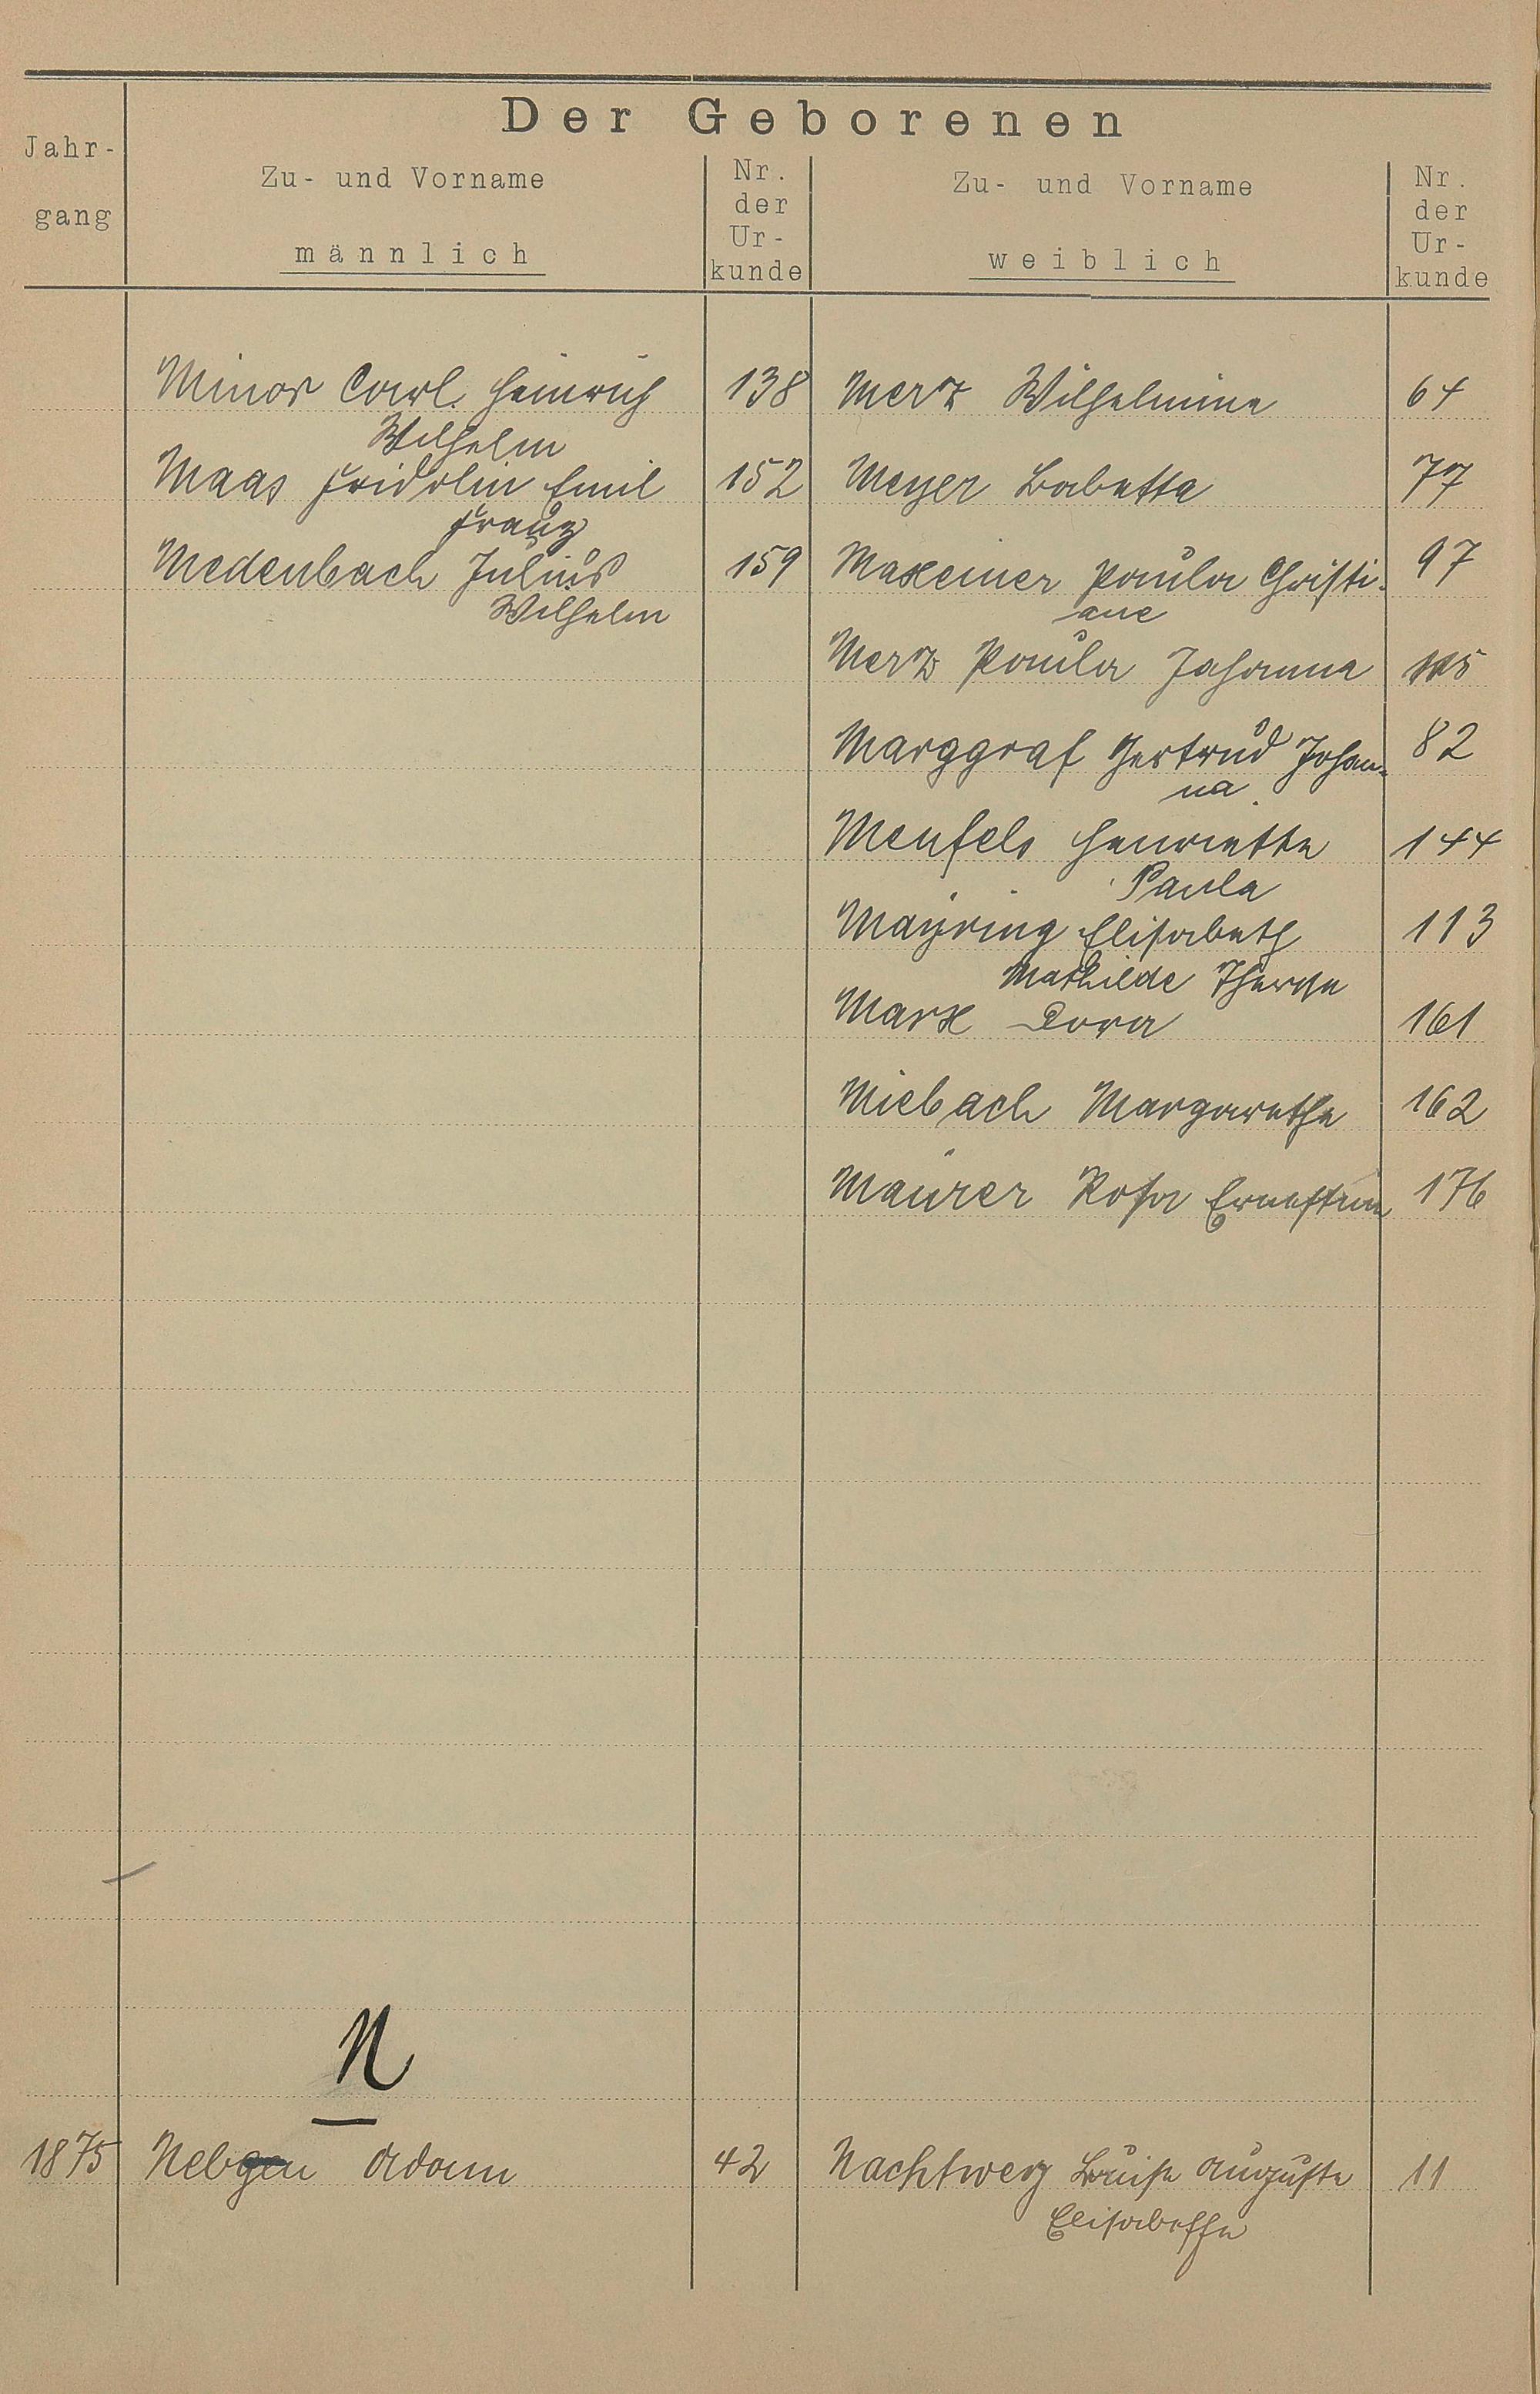 Der Geborenen
Jahr-
gang
Zu- und Vorname
männlich
Nr.
der
Ur-
kunde
Zu- und Vorname
weiblich
Nr.
der
Ur-
kunde
Minor Carl Heinrich 138 Merz Wilhelmine 64
Wilhelm
Maas Fridolin Emil 152 Meyer Babetta 77
Franz
Medenbach Julius 159 Maxeiner Paula Christi- 97
Wilhelm ane
Merz Paula Johanna
Marggraf Gertrud Johan- 82
na
Menfels Henriette 144
Paula
Mayring Elisabeth 113
Mathilde Therese
Marx Dora 161
Miebach Margarethe 162
Maurer Rosa Ernestine 176
N
1875 Nebgen Adam 42 Nachtweg Louise Auguste 11
Elisabethe